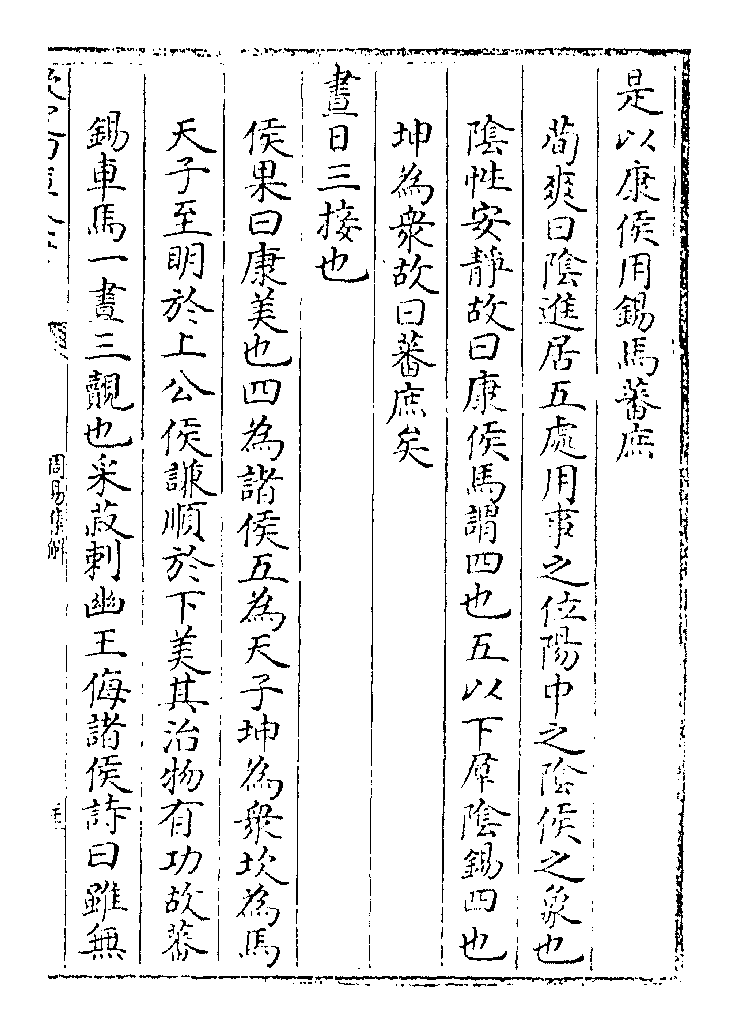 是以康侯用錫馬蕃庶
荀爽曰陰進居五處用事之位陽中之陰侯之象也
陰性安靜故曰康侯馬謂四也五以下羣陰錫四也
坤為衆故曰蕃庶矣
晝日三接也
侯果曰康美也四為諸侯五為天子坤為衆坎為馬
天子至明於上公侯謙順於下美其治物有功故蕃
錫車馬一晝三覿也采菽刺幽王侮諸侯詩曰雖無
周易集解